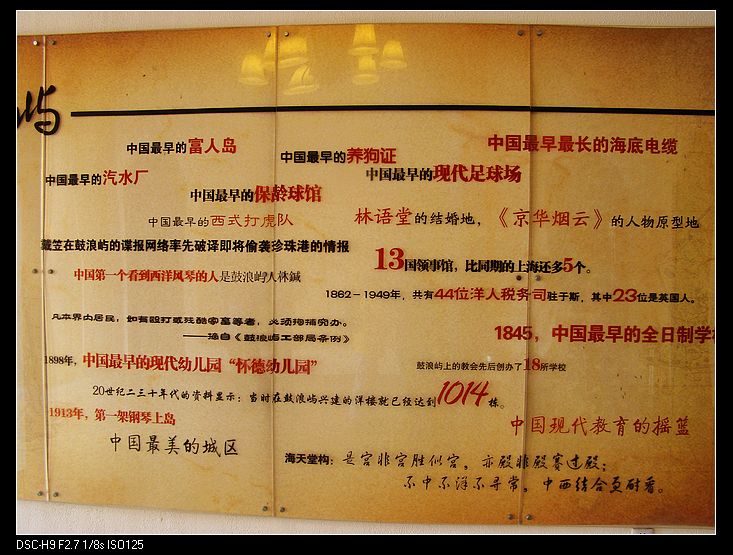 屿
中国最早的富人岛
中国最早的养狗证
中国最早最长的海底电缆
中国最早的汽水厂
中国最早的保龄球馆
中国最早的现代足球场
中国最早的西式打虎队
林语堂的结婚地，《京华烟云》的人物原型地
戴笠在鼓浪屿的谍报网络率先破译即将偷袭珍珠港的情报
13国领事馆，比同期的上海还多5个。
中国第一个看到西洋风琴的人是鼓浪屿人林鍼
1862－1949年，共有44位洋人税务司驻于斯，其中23位是英国人。
凡本界内居民，如有殴打或残酷家畜等者，必须拘捕究办。
——摘自《鼓浪屿工部局条例》
1845，中国最早的全日制学校
1898年，中国最早的现代幼儿园“怀德幼儿园”
鼓浪屿上的教会先后创办了18所学校
20世纪二三十年代的资料显示：当时在鼓浪屿兴建的洋楼就已经达到1014栋。
1913年，第一架钢琴上岛
中国现代教育的摇篮
中国最美的城区
海天堂构：是宫非宫胜似宫，亦殿非殿赛过殿；
不中不洋不寻常，中西结合更耐看。
DSC-H9 F2.7 1/8s ISO125